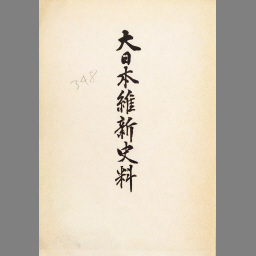 大日本維新史料
348